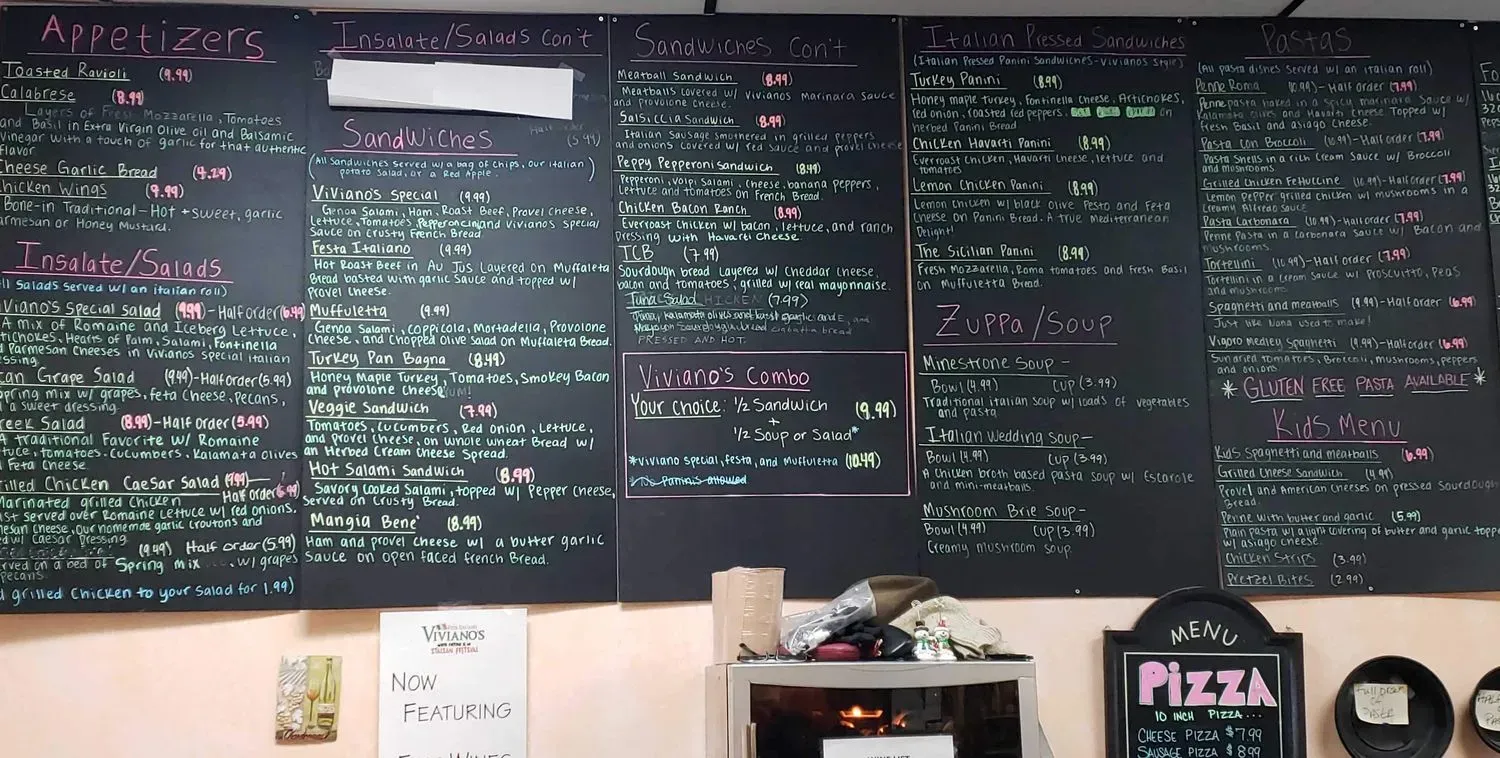 Appetizers
Toasted Ravioli (9.99)
Calabrese (8.99)
Layers of Fresh Mozzarella, Tomatoes
and Basil in Extra Virgin Olive oil and Balsamic
Vinegar with a touch of garlic for that authentic
flavor
Cheese Garlic Bread (4.29)
Chicken Wings (9.99)
Bone-in Traditional-Hot + sweet, garlic
armesan or Honey Mustard.
Insalate/Salads
ll Salads served w/ an italian roll)
Viviano's Special Salad (9.99)-Half order(6.49)
A mix of Romaine and Iceberg Lettuce,
tichokes, Hearts of Palm, Salami, Fontinella
d Parmesan Cheeses in Vivianos Special Italian
essing.
can Grape Salad (9.49)-Half order(5.99)
Spring mix w/ grapes, feta cheese, pecans,
a sweet dressing.
reek Salad (8.99)-Half order(5.49)
A traditional Favorite w/ Romaine
tuce, tomatoes-cucumbers, Kalamata olives
Feta Cheese.
rilled Chicken Caesar Salad (9.99)-
Half order
Marinated grilled chicken
ast served over Romaine Lettuce w/ red onions,
mesan cheese, our homemde garlic croutons and
ed w/ Caesar Dressing.
(9.49) Half order(5.99)
rved on a bed of Spring Mix w/ grapes
pecans.
d grilled Chicken to your Salad for 1.99)
Insalate/Salads Con't
Half order
(5.99)
Sandwiches
(All Sandwiches served w/ a bag of chips, our italian
potato salad, or a Red Apple.)
Viviano's Special (9.99)
Genoa Salami, Ham, Roast Beef, Provel Cheese,
Lettuce, Tomatoes, Pepperoncini and Viviano's special
Sauce on Crusty French Bread
Festa Italiano (9.99)
Hot Roast Beef in Au Jus Layered on Muffaleta
Bread basted with garlic Sauce and topped w/
Provel Cheese.
Muffuletta (9.99)
Genoa Salami, Coppicola, Mortadella, Provolone
Cheese, and Chopped Olive Salad on Muffaleta Bread.
Turkey Pan Bagna (8.49)
Honey Maple Turkey, Tomatoes, Smokey Bacon
and provolone cheese Yum!
Veggie Sandwich (7.99)
Tomatoes, Cucumbers, Red onion, Lettuce,
and Provel Cheese, on whole wheat Bread w/
an Herbed Cream Cheese Spread.
Hot Salami Sandwich (8.99)
Savory Cooked Salami, topped w/ Pepper Cheese,
served on Crusty Bread.
Mangia Bene' (8.99)
Ham and provel cheese w/ a butter garlic
Sauce on open faced french Bread.
Sandwiches Con't
Meatball Sandwich (8.99)
Meatballs covered w/ Vivianos Marinara Sauce
and Provolone Cheese.
Salsiccia Sandwich (8.99)
Italian Sausage smothered in grilled peppers
and onions covered w/ red sauce and provel cheese
Peppy Pepperoni Sandwich (8.49)
Pepperoni, Volpi Salami, cheese, banana peppers,
Lettuce and tomatoes on French Bread.
Chicken Bacon Ranch (8.99)
Everroast Chicken w/ bacon, lettuce, and ranch
Dressing with Havarti cheese.
TCB (7.99)
Sourdough bread Layered w/ Cheddar cheese,
bacon and tomatoes, grilled w/ real mayonnaise.
Tuna Salad CHICKEN (7.99)
PRESSED AND HOT.
Viviano's Combo
Your choice: 1/2 Sandwich (9.99)
+
1/2 Soup or Salad*
*Viviano special, festa, and Muffuletta (10.49)
*No Paninis allowed
Italian Pressed Sandwiches
(Italian Pressed Panini Sandwiches-Vivianos Style)
Turkey Panini (8.99)
Honey maple Turkey, Fontinella Cheese, Artichokes,
red onion, roasted red peppers, on
herbed Panini Bread
Chicken Havarti Panini (8.99)
Everroast Chicken, Havarti Cheese, lettuce and
tomatoes
Lemon Chicken Panini (8.99)
Lemon Chicken w/ black Olive Pesto and Feta
Cheese on Panini Bread. A true Mediterranean
Delight!
The Sicilian Panini (8.99)
Fresh Mozzarella, Roma tomatoes and fresh Basil
on Muffuleta Bread.
Zuppa/Soup
Minestrone Soup-
Bowl (4.99) Cup (3.99)
Traditional italian soup w/ loads of vegetables
and pasta
Italian Wedding Soup-
Bowl (4.99) Cup (3.99)
A Chicken broth based pasta soup w/ Escarole
and mini-meatballs.
Mushroom Brie Soup-
Bowl (4.99) Cup (3.99)
Creamy mushroom soup
Pastas
(All pasta dishes served w/ an italian roll)
Penne Roma (10.99)-Half order (7.99)
Penne pasta baked in a spicy marinara Sauce w/
Kalamata olives and Havarti cheese Topped w/
fresh Basil and asiago cheese.
Pasta con Broccoli (10.99)-Half order (7.99)
Pasta Shells in a rich Cream Sauce w/ Broccoli
and mushrooms.
Grilled Chicken Fettuccine (10.99)-Half order (7.99)
Lemon Pepper grilled chicken w/ mushrooms in a
Creamy Alfredo Sauce
Pasta Carbonara (10.99)-Half order (7.99)
Penne Pasta in a Carbonara Sauce w/ Bacon and
mushrooms.
Tortellini (10.99)-Half order (7.99)
Tortellini in a Cream Sauce w/ Proscuitto, Peas
and mushrooms
Spaghetti and meatballs (9.99)-Half order (6.99)
Just like Nana used to make!
Vigoro Medley Spaghetti (9.99)-Half order (6.99)
Sundried tomatoes, Broccoli, mushrooms, peppers
and onions
* Gluten Free Pasta Available *
Kids Menu
Kids Spaghetti and meatballs (6.99)
Grilled Cheese Sandwich (4.99)
Provel and American cheeses on pressed Sourdough
Bread.
Penne with butter and garlic (5.99)
Plain pasta w/ a light covering of butter and garlic topp
w/ asiago cheese.
Chicken Strips (3.99)
Pretzel Bites (2.99)
VIVIANO'S
ITALIAN FESTIVAL
NOW
FEATURING
MENU
PIZZA
10 INCH PIZZA...
CHEESE PIZZA $7.99
SAUSAGE PIZZA $8.99
Full order
of
PASTA